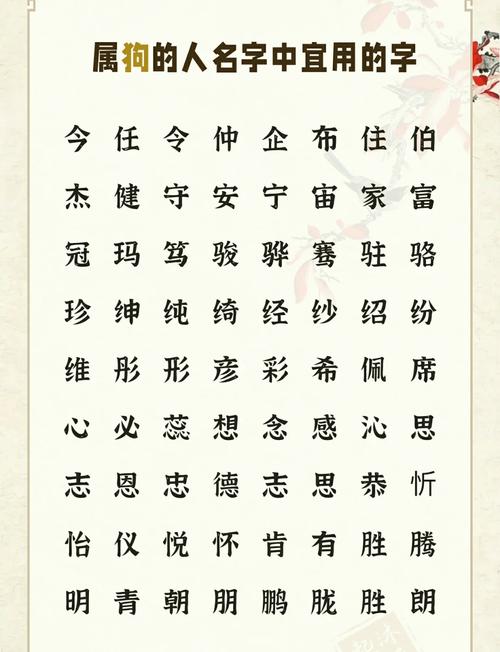 属狗的人名字中宜用的字
今 任 令 仲 企 布 住 伯
杰 健 守 安 宁 宙 家 富
冠 玛 笃 骏 骅 骞 驻 骆
珍 绅 纯 绮 经 纱 绍 纷
维 彤 形 彦 彩 希 佩 席
心 必 蕊 想 念 感 沁 思
志 恩 忠 德 志 思 恭 忻
怡 仪 悦 怀 肯 有 胜 腾
明 青 朝 朋 鹏 胧 胜 朗